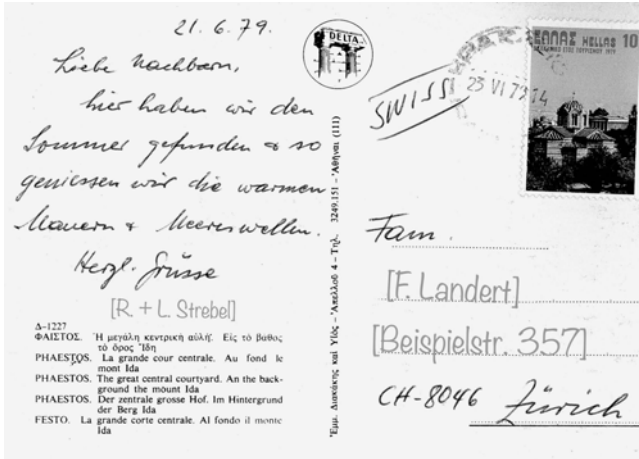 21.6.79.
Liebe Nachbarn,
hier haben wir den
Sommer gefunden & so
geniessen wir die warmen
Mauern & Meereswellen.
Herzl. Grüsse
[R. + L. Strebel]
Δ-1227
ΦΑΙΣΤΟΣ. Ἡ μεγάλη κεντρική αὐλή. Εἰς τὸ βάθος
τὸ ὄρος Ἴδη
PHAESTOS. La grande cour centrale. Au fond le
mont Ida
PHAESTOS. The great central courtyard. An the back-
ground the mount Ida
PHAESTOS. Der zentrale grosse Hof. Im Hintergrund
der Berg Ida
FESTO. La grande corte centrale. Al fondo il monte
Ida
DELTA
Ἐμμ. Διακάκης καὶ Υἱὸς – Ἀπελλοῦ 4 – Τηλ. 3249.151 – Ἀθῆναι (111)
SWISS
23 VI 79 14
ΕΛΛΑΣ HELLAS 10
Fam.
[F. Landert]
[Beispielstr. 357]
CH-8046 Zürich